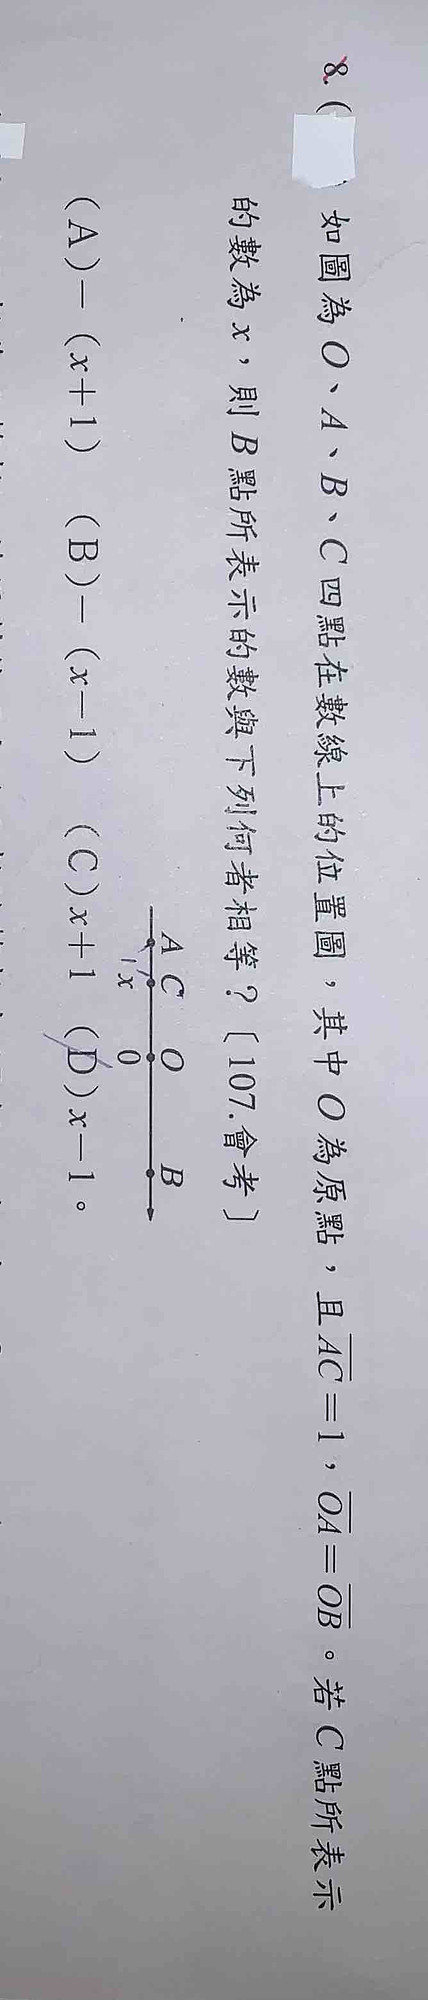 8. (
如圖為 O、A、B、C 四點在數線上的位置圖，其中 O 為原點，且 \overline{AC}=1，\overline{OA}=\overline{OB}。若 C 點所表示
的數為 x，則 B 點所表示的數與下列何者相等？〔107.會考〕
A C O B
x 0
(A)－(x+1) (B)－(x－1) (C)x+1 (D)x－1。